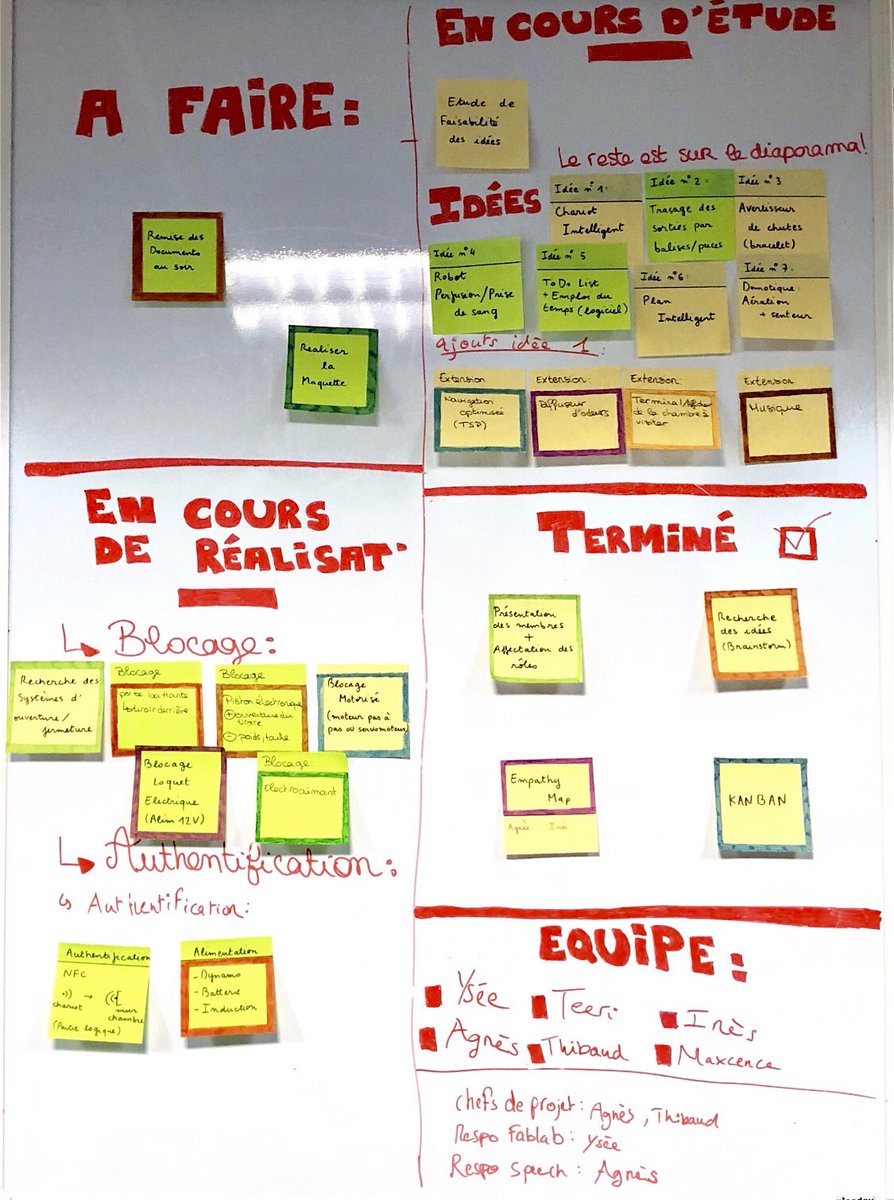 A FAIRE:
Remise des
Documents
au soir
Realiser
la
Maquette
EN COURS D'ÉTUDE
Etude de
Faisabilité
des idées
Le reste est sur le diaporama!
IDÉES
Idée n°1:
Chariot
Intelligent
Idée n°2:
Traçage des
sorties par
balises/puces
Idée n°3
Avertisseur
de chutes
(bracelet)
Idée n°4
Robot
Perfusion/Prise
de sang
Idée n°5
To Do List
+ Emploi du
temps (logiciel)
Idée n°6:
Plan
Intelligent
Idée n°7:
Domotique:
Aération
+ senteur
ajouts idée 1:
Extension
Navigation
optimisée
(TSP)
Extension:
Diffuseur
d'odeurs
Extension:
Terminal/
de la chambre à
visiter
Extension
Musique
EN COURS
DE RÉALISAT°
↳ Blocage:
Recherche des
Systèmes d'
ouverture/
fermeture
Blocage
porte battante
↳ tiroir derrière
Blocage
Piston électronique
⊕ ouverture du
tiroire
⊖ poids, taille
Blocage
Motorisé
(moteur pas à
pas ou servomoteur)
Blocage
Loquet
Electrique
(Alim 12V)
Blocage:
Electroaimant
↳ Authentification:
↳ Authentification:
Authentification
NFC
chariot →
mur
chambre
(Partie logique)
Alimentation
- Dynamo
- Batterie
- Induction
TERMINÉ
Présentation
des membres
+
Affectation des
rôles
Recherche
des idées
(Brainstorm)
Empathy
Map
Agnès Inès
KANBAN
EQUIPE:
Ysée
Teeri
Inès
Agnès
Thibaud
Maxcence
Chefs de projet: Agnès, Thibaud
Respo Fablab: Ysée
Respo speech: Agnès